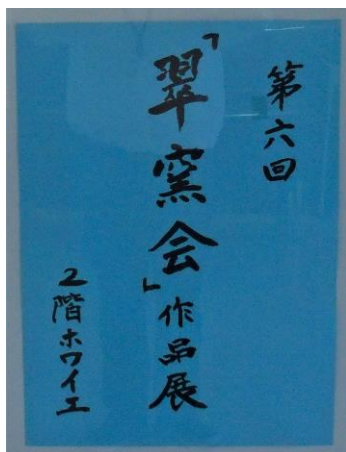 第六回
「翠窯会」作品展
2階ホワイエ